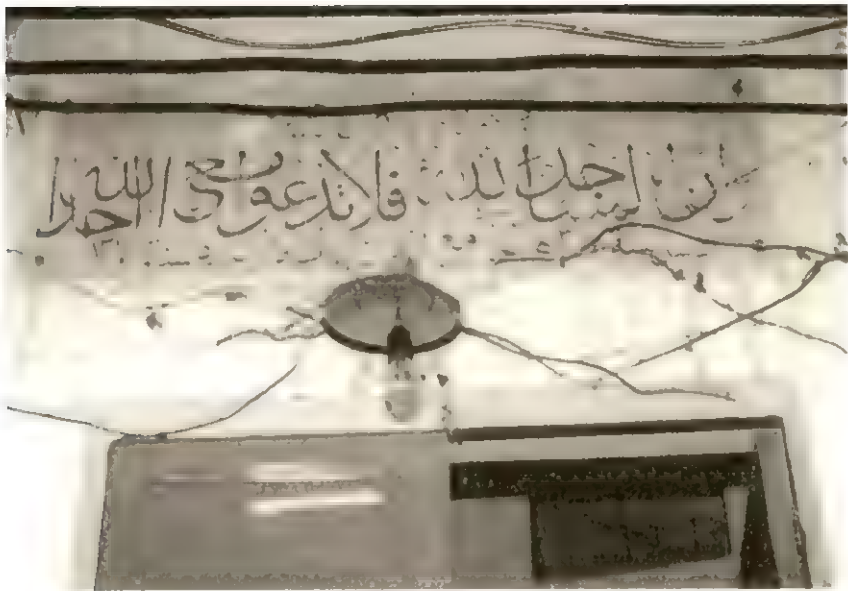 ان المساجد لله فلا تدعوا مع الله احدا